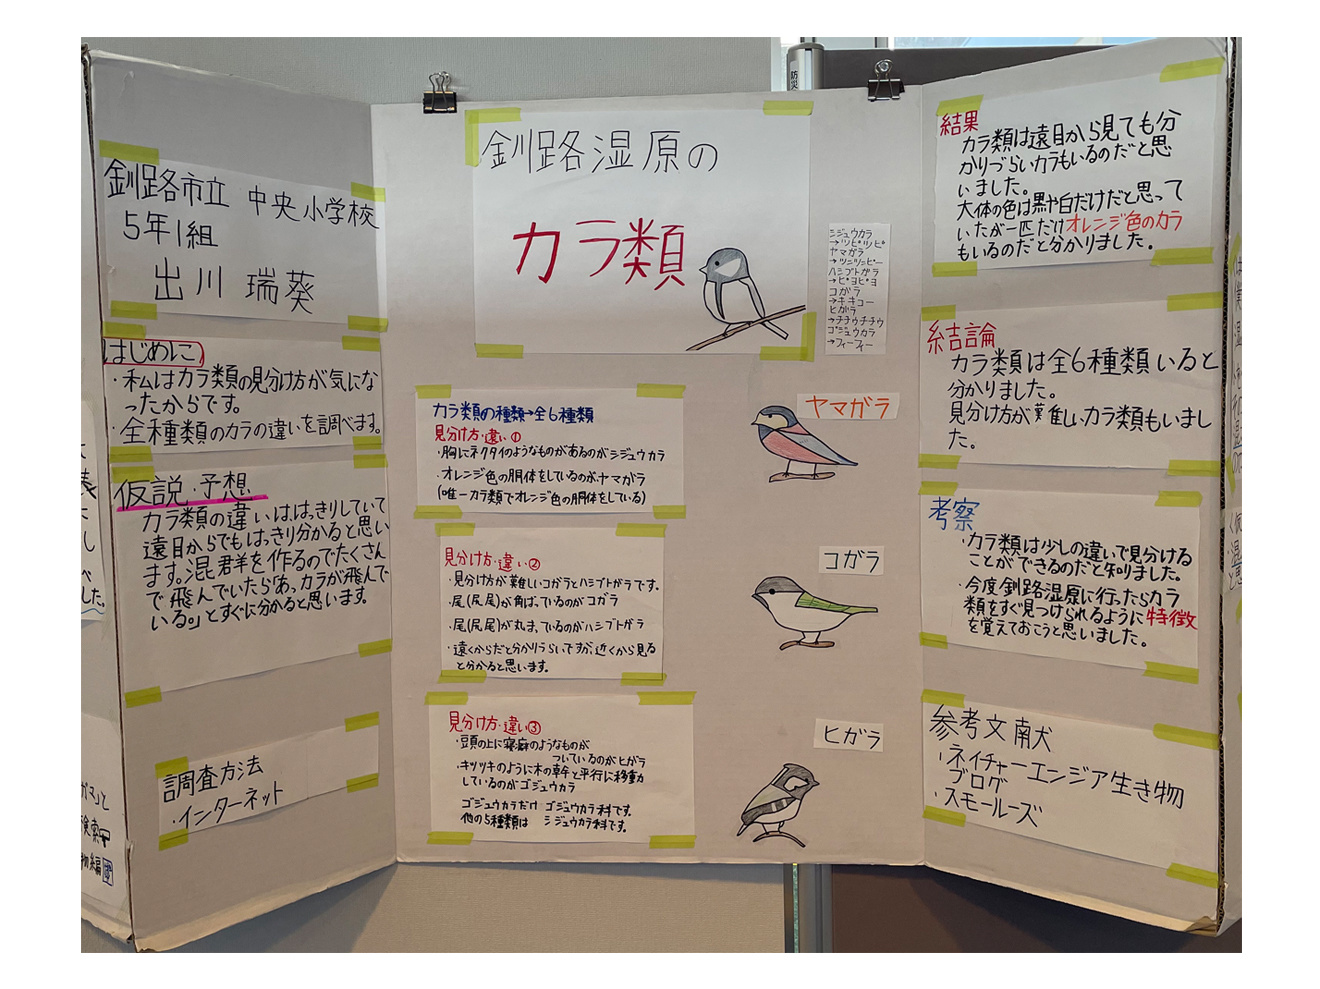 釧路市立 中央小学校
5年1組
出川 瑞葵
はじめに
・私はカラ類の見分け方が気にな
ったからです。
・全種類のカラの違いを調べます。
仮説・予想
カラ類の違いははっきりしていて
遠目からでもはっきり分かると思い
ます。混群を作るのでたくさん
で飛んでいたら「あ、カラが飛んで
いる。」とすぐに分かると思います。
調査方法
・インターネット
釧路湿原の
カラ類
シジュウカラ
→ツピ°ツピ°
ヤマガラ
→ツニツニピー
ハシブトガラ
→ピ°ヨピ°ヨ
コガラ
→キキコー
ヒガラ
→チチウチチウ
ゴジュウカラ
→フィーフィー
カラ類の種類→全6種類
見分け方・違い①
・胸にネクタイのようなものがあるのがシジュウカラ
・オレンジ色の胴体をしているのがヤマガラ
(唯一カラ類でオレンジ色の胴体をしている)
見分け方・違い②
・見分け方が難しいコガラとハシブトガラです。
・尾(尻尾)が角ばっているのがコガラ
・尾(尻尾)が丸まっているのがハシブトガラ
・遠くからだと分かりづらいですが、近くから見る
と分かると思います。
見分け方・違い③
・頭の上に寝癖のようなものが
ついているのがヒガラ
・キツツキのように木の幹と平行に移動
しているのがゴジュウカラ
ゴジュウカラだけ ゴジュウカラ科です。
他の5種類は シジュウカラ科です。
ヤマガラ
コガラ
ヒガラ
結果
カラ類は遠目から見ても分
かりづらいカラもいるのだと思
いました。
大体の色は黒や白だけだと思って
いたが一匹だけオレンジ色のカラ
もいるのだと分かりました。
結論
カラ類は全6種類いると
分かりました。
見分け方が難しいカラ類もいまし
た。
考察
・カラ類は少しの違いで見分ける
ことができるのだと知りました。
・今度釧路湿原に行ったらカラ
類をすぐ見つけられるように特徴
を覚えておこうと思いました。
参考文献
・ネイチャーエンジア生き物
ブログ
・スモールーズ
防災